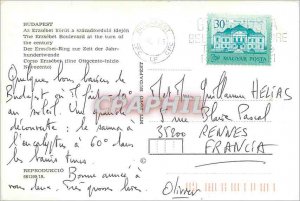 BUDAPEST
Az Erzsébet körút a századforduló idején
The Erzsébet Boulevard at the turn of
the century
Der Erzsébet-Ring zur Zeit der Jahr-
hundertwende
Corso Erzsébet (fine Ottocento-inizio
Novecento)
Quelques bons baisers de
Budapest où il fait 30°
au soleil. Une grande
découverte : le sauna à
l'eucalyptus à 60° dans
les bains turcs.
Bonne année à
vous deux. Très grosses bises
Olivier
REPRODUKCIÓ
BUDAPEST
30 Ft
MAGYAR POSTA
Guillaume HELIAS
rue Blaise Pascal
35200 RENNES
FRANCIA
PROCARTA.COM